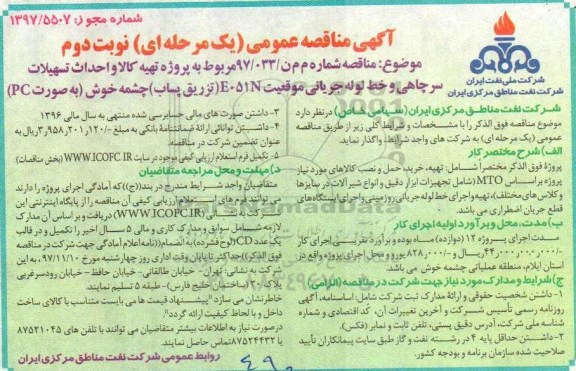 شماره مجوز: ۱۳۹۷/۵۵۰۷
آگهی مناقصه عمومی (یک مرحله ای) نوبت دوم
موضوع: مناقصه شماره م م ن/۹۷/۰۳۳ مربوط به پروژه تهیه کالا و احداث تسهیلات
سرچاهی و خط لوله جریانی موقعیت E۰۵۱N (تزریق پساب) چشمه خوش (به صورت PC)
شرکت ملی نفت ایران
شرکت نفت مناطق مرکزی ایران
شرکت نفت مناطق مرکزی ایران (سهامی خاص) در نظر دارد
موضوع مناقصه فوق الذکر را با مشخصات و شرایط کلی زیر از طریق مناقصه
عمومی (یک مرحله ای) به شرکت های واجد شرایط، واگذار نماید.
الف) شرح مختصر کار
پروژه فوق الذکر مختصراً شامل: تهیه، خرید، حمل و نصب کالاهای مورد نیاز
پروژه براساس MTO (شامل تجهیزات ابزار دقیق و انواع شیرآلات در سایزها
و کلاس های مختلف)، تهیه و اجرای خط لوله جریانی روزمینی و اجرای ایستگاه های
قطع جریان اضطراری می باشد.
ب) مدت، محل و برآورد اولیه اجرای کار
مدت اجرای پروژه ۱۲ (دوازده) ماه بوده و برآورد تقریبی اجرای کار
۴۴,۰۰۰,۰۰۰,۰۰۰ ریال و ۸۲۸,۰۰۰ یورو و محل اجرای پروژه واقع در
استان ایلام، منطقه عملیاتی چشمه خوش می باشد.
ج) شرایط و مدارک مورد نیاز جهت شرکت در مناقصه (الزامی)
۱- داشتن شخصیت حقوقی و ارائه مدارک ثبت شرکت شامل: اساسنامه، آگهی
روزنامه رسمی تأسیس شرکت و آخرین تغییرات آن، کد اقتصادی و شماره
شناسه ملی شرکت، آدرس دقیق پستی، تلفن ثابت و نمابر (فکس).
۲- داشتن حداقل پایه ۴ در رشته نفت و گاز طبق سایت پیمانکاران تأیید
صلاحیت شده سازمان برنامه و بودجه کشور.
۳- داشتن صورت های مالی حسابرسی شده منتهی به سال مالی ۱۳۹۶
۴- داشتن توانائی ارائه ضمانتنامه بانکی به مبلغ ۳,۹۵۸,۲۰۱,۱۲۰ ریال
به عنوان تضمین شرکت در مناقصه.
۵- تکمیل فرم استعلام ارزیابی کیفی موجود در سایت WWW.ICOFC.IR (بخش مناقصات)
د) مهلت و محل مراجعه متقاضیان
متقاضیان واجد شرایط مندرج در بند (ج) که آمادگی اجرای پروژه را دارند
می توانند فرم های استعلام ارزیابی کیفی آن مناقصه را از پایگاه اینترنتی این
(WWW.ICOFC.IR) دریافت و بر اساس آن مدارک
لازمه شامل سوابق و مدارک کاری و مالی ۵ سال اخیر را تکمیل و در قالب
یک عدد CD (لوح فشرده) به انضمام (نامه اعلام آمادگی جهت شرکت در مناقصه
فوق الذکر) حداکثر تا پایان وقت اداری روز چهارشنبه مورخ ۹۷/۱۱/۱۰ به این
شرکت به نشانی: تهران- خیابان طالقانی- خیابان حافظ - خیابان رودسر غربی
پلاک ۱۷ (ساختمان خلیج فارس) - طبقه ۵ تسلیم نمایند.
خاطر نشان می سازد "پیشنهاد قیمت ها می بایست متناسب با کالای ساخت
داخل و با لحاظ کیفیت ارائه گردد".
در صورت نیاز به اطلاعات بیشتر متقاضیان می توانند با تلفن های ۸۷۵۲۱۰۴۵
یا ۸۷۵۲۴۴۳۲ تماس حاصل نمایند.
روابط عمومی شرکت نفت مناطق مرکزی ایران